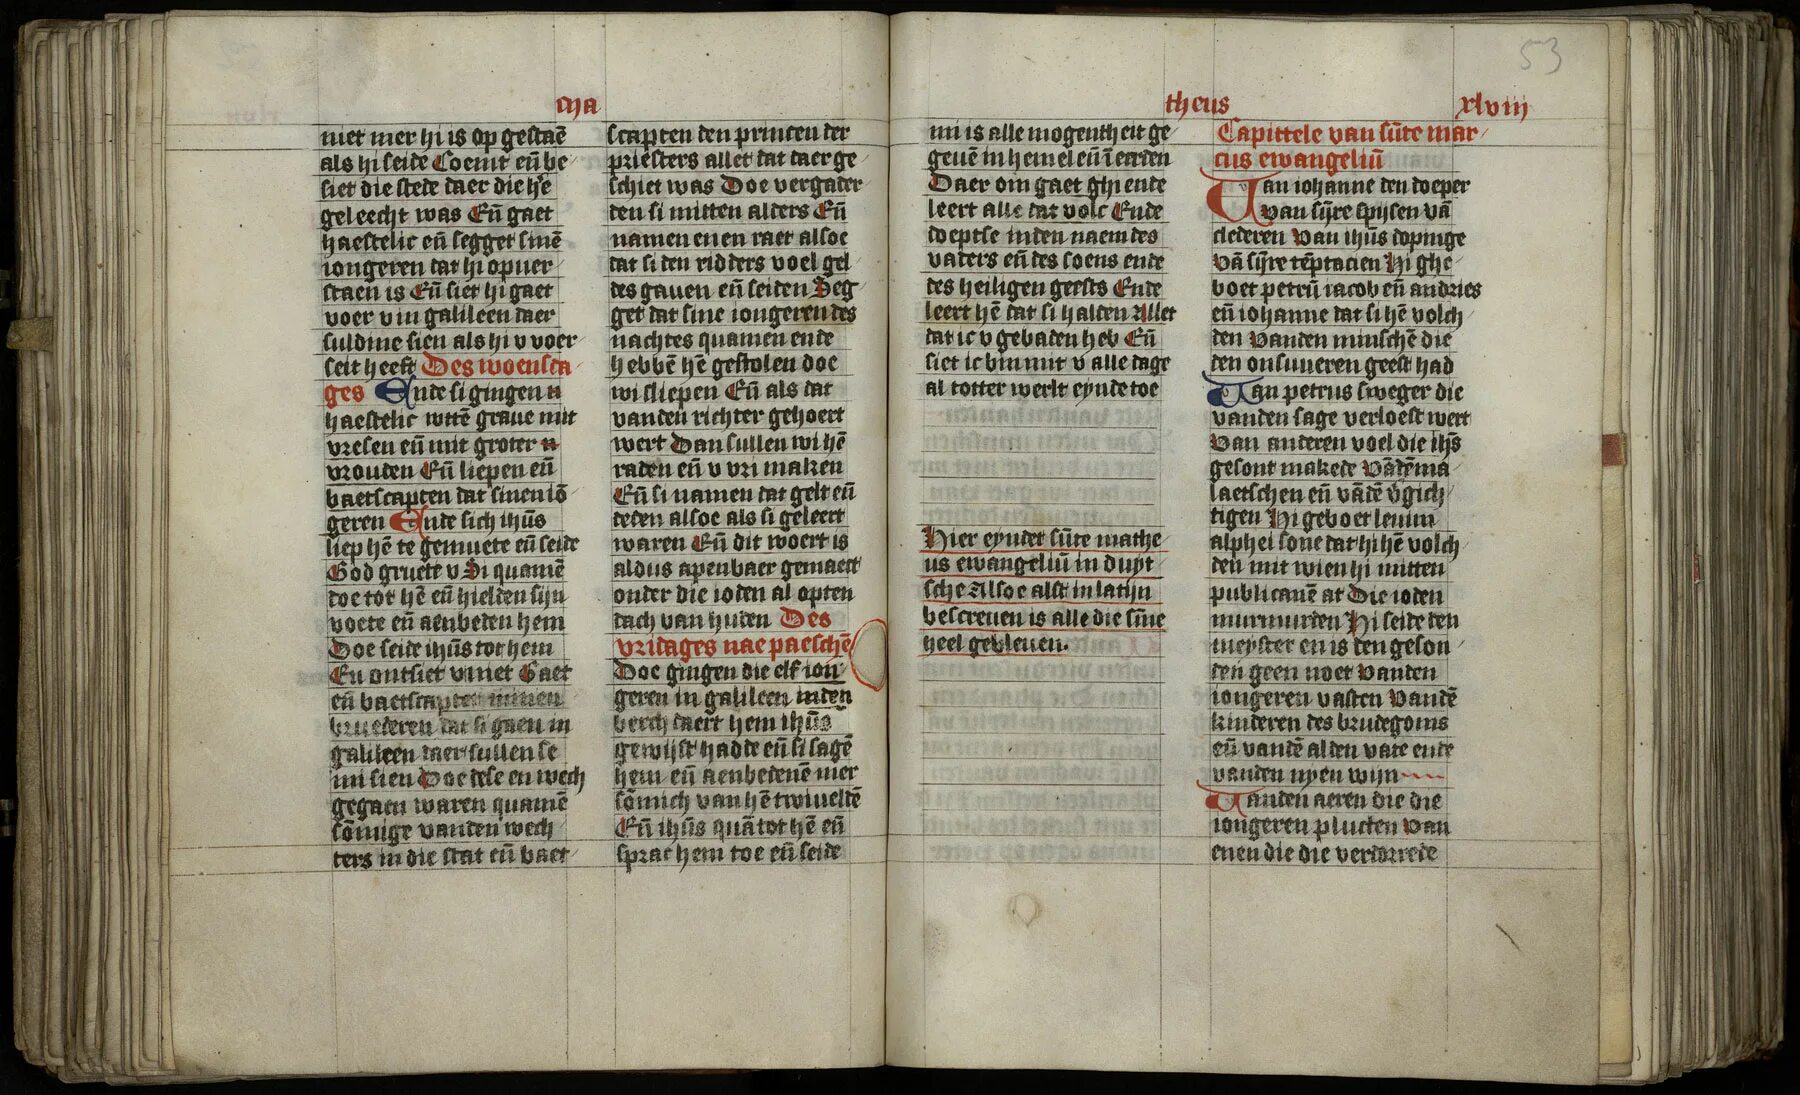 ma
niet mer hi is op gestaē
als hi seide Coemt eñ be
siet die stede daer die hē
geleecht was Eñ gaet
haestelic eñ segget sinē
iongeren dat hi op uer
staen is Eñ siet hi gaet
voer v in galileen daer
suldine sien als hi v voer
seit heeft Des woensda
ges Ende si gingen u
haestelic wttē graue mit
vresen eñ mit groter u
vrouden Eñ liepen eñ
baetscapten dat sinen iō
geren Ende sich ihūs
liep hē te gemuete eñ seide
God gruete v Si quamē
doe tot hē eñ hielden sijn
voete eñ aenbeden hem
Doe seide ihūs tot hem
En ontsiet v niet Gaet
eñ baetscaptet minen
bruederen dat si gaen in
galileen daer sullen se
mi sien Doe dese en wech
gegaen waren quamē
sōmige vanden wech
ters in die stat eñ baet
scapten den princen der
priesters allet dat daer ge
schiet was Doe vergader
den si mitten alders Eñ
namen enen raet alsoe
dat si den ridders voel gel
des gauen eñ seiden Seg
get dat sine iongeren des
nachtes quamen ende
hebbē hē gestolen doe
wi sliepen Eñ als dat
vanden richter gehoert
wert Dan sullen wi hē
raden eñ v vri maken
Eñ si namen dat gelt eñ
deden alsoe als si geleert
waren Eñ dit woert is
aldus apenbaer gemaect
onder die ioden al opten
dach van huden Des
vridages nae paeschē
Doe gingen die elf ion
geren in galileen inden
berch daert hem ihūs
gewijst hadde eñ si sagē
hem eñ aenbedenē mer
sōmich van hē twiueldē
Eñ ihūs quā tot hē eñ
sprac hem toe eñ seide
theus
xlviij
53
mi is alle mogentheit ge
geuē in hemel eñ ī eerden
Daer om gaet ghi ende
leert alle dat volc Ende
doeptse inden naem des
vaders eñ des soens ende
des heiligen geests Ende
leert hē dat si halden Allet
dat ic v gebaden heb Eñ
siet ic bin mit v alle dage
al totter werlt eynde toe
Hier eyndet sūte mathe
us ewangeliū in duyt
sche Alsoe alst in latijn
bescreuen is alle die sīne
heel gebleuen.
Capittele van sūte mar
cus ewangeliū
Van iohanne den doeper
van sijre spijsen vā
clederen Van ihūs dopinge
Vā sijre tēptacien Hi ghe
boet petrū iacob eñ andries
eñ iohanne dat si hē volch
den Vanden minschē die
den onsuueren geest had
Van petrus sweger die
vanden sage verloest wert
Van anderen voel die ihūs
gesont makede Vādē ma
laetschen eñ vādē v̄gich
tigen Hi geboet leuim
alphei sone dat hi hē volch
den mit wien hi mitten
publicanē at Die ioden
murmurden Hi seide den
meyster en is den geson
den geen noet Vanden
iongeren vasten Vandē
kinderen des brudegoms
eñ vandē alden vate ende
vanden nyen wijn
Vanden aeren die die
iongeren plucten Van
enen die die verdorrede